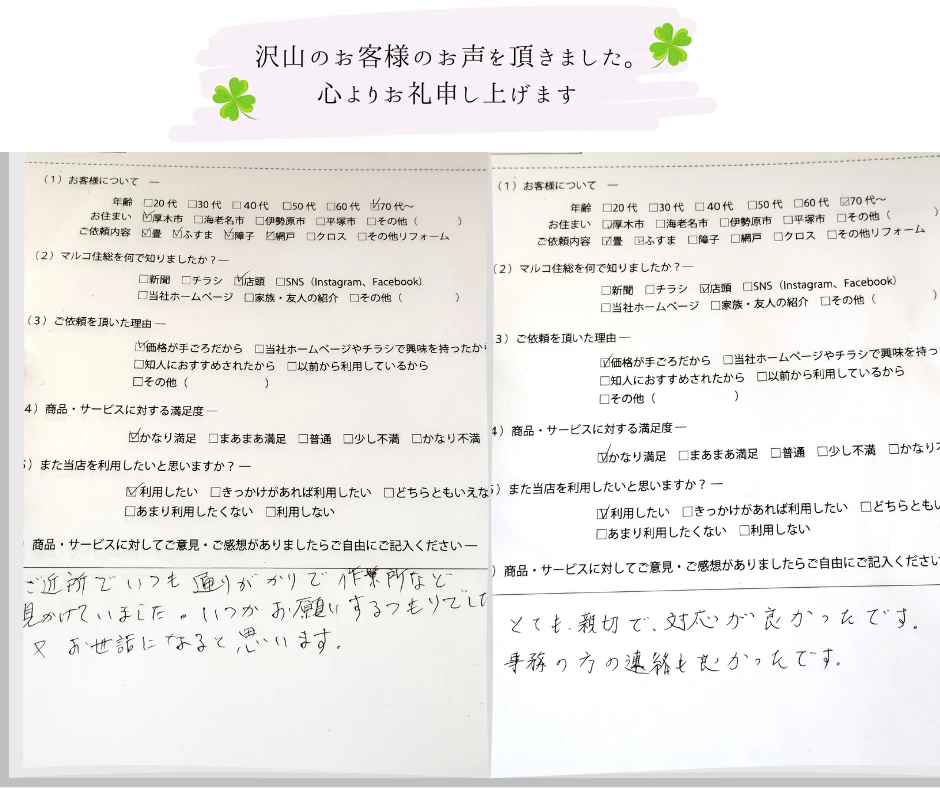 沢山のお客様のお声を頂きました。
心よりお礼申し上げます
(1) お客様について ―
年齢 □20代 □30代 □40代 □50代 □60代 ☑70代～
お住まい ☑厚木市 □海老名市 □伊勢原市 □平塚市 □その他 (    )
ご依頼内容 ☑畳 ☑ふすま ☑障子 ☑網戸 □クロス □その他リフォーム
(2) マルコ住総を何で知りましたか？―
□新聞 □チラシ ☑店頭 □SNS（Instagram、Facebook）
□当社ホームページ □家族・友人の紹介 □その他 (    )
(3) ご依頼を頂いた理由 ―
☑価格が手ごろだから □当社ホームページやチラシで興味を持ったから
□知人におすすめされたから □以前から利用しているから
□その他 (    )
4) 商品・サービスに対する満足度 ―
☑かなり満足 □まあまあ満足 □普通 □少し不満 □かなり不満
5) また当店を利用したいと思いますか？ ―
☑利用したい □きっかけがあれば利用したい □どちらともいえな
□あまり利用したくない □利用しない
) 商品・サービスに対してご意見・ご感想がありましたらご自由にご記入ください ―
ご近所でいつも通りがかりで作業所など
見かけていました。いつかお願いするつもりでした
又お世話になると思います。
(1) お客様について ―
年齢 □20代 □30代 □40代 □50代 □60代 ☑70代～
お住まい ☑厚木市 □海老名市 □伊勢原市 □平塚市 □その他 (    )
ご依頼内容 ☑畳 ☑ふすま □障子 □網戸 □クロス □その他リフォーム
(2) マルコ住総を何で知りましたか？―
□新聞 □チラシ ☑店頭 □SNS（Instagram、Facebook）
□当社ホームページ □家族・友人の紹介 □その他 (    )
3) ご依頼を頂いた理由 ―
☑価格が手ごろだから □当社ホームページやチラシで興味を持っ
□知人におすすめされたから □以前から利用しているから
□その他 (    )
4) 商品・サービスに対する満足度 ―
☑かなり満足 □まあまあ満足 □普通 □少し不満 □かなり不
5) また当店を利用したいと思いますか？ ―
☑利用したい □きっかけがあれば利用したい □どちらとも
□あまり利用したくない □利用しない
) 商品・サービスに対してご意見・ご感想がありましたらご自由にご記入ください
とても、親切で、対応が良かったです。
事務の方の連絡も良かったです。